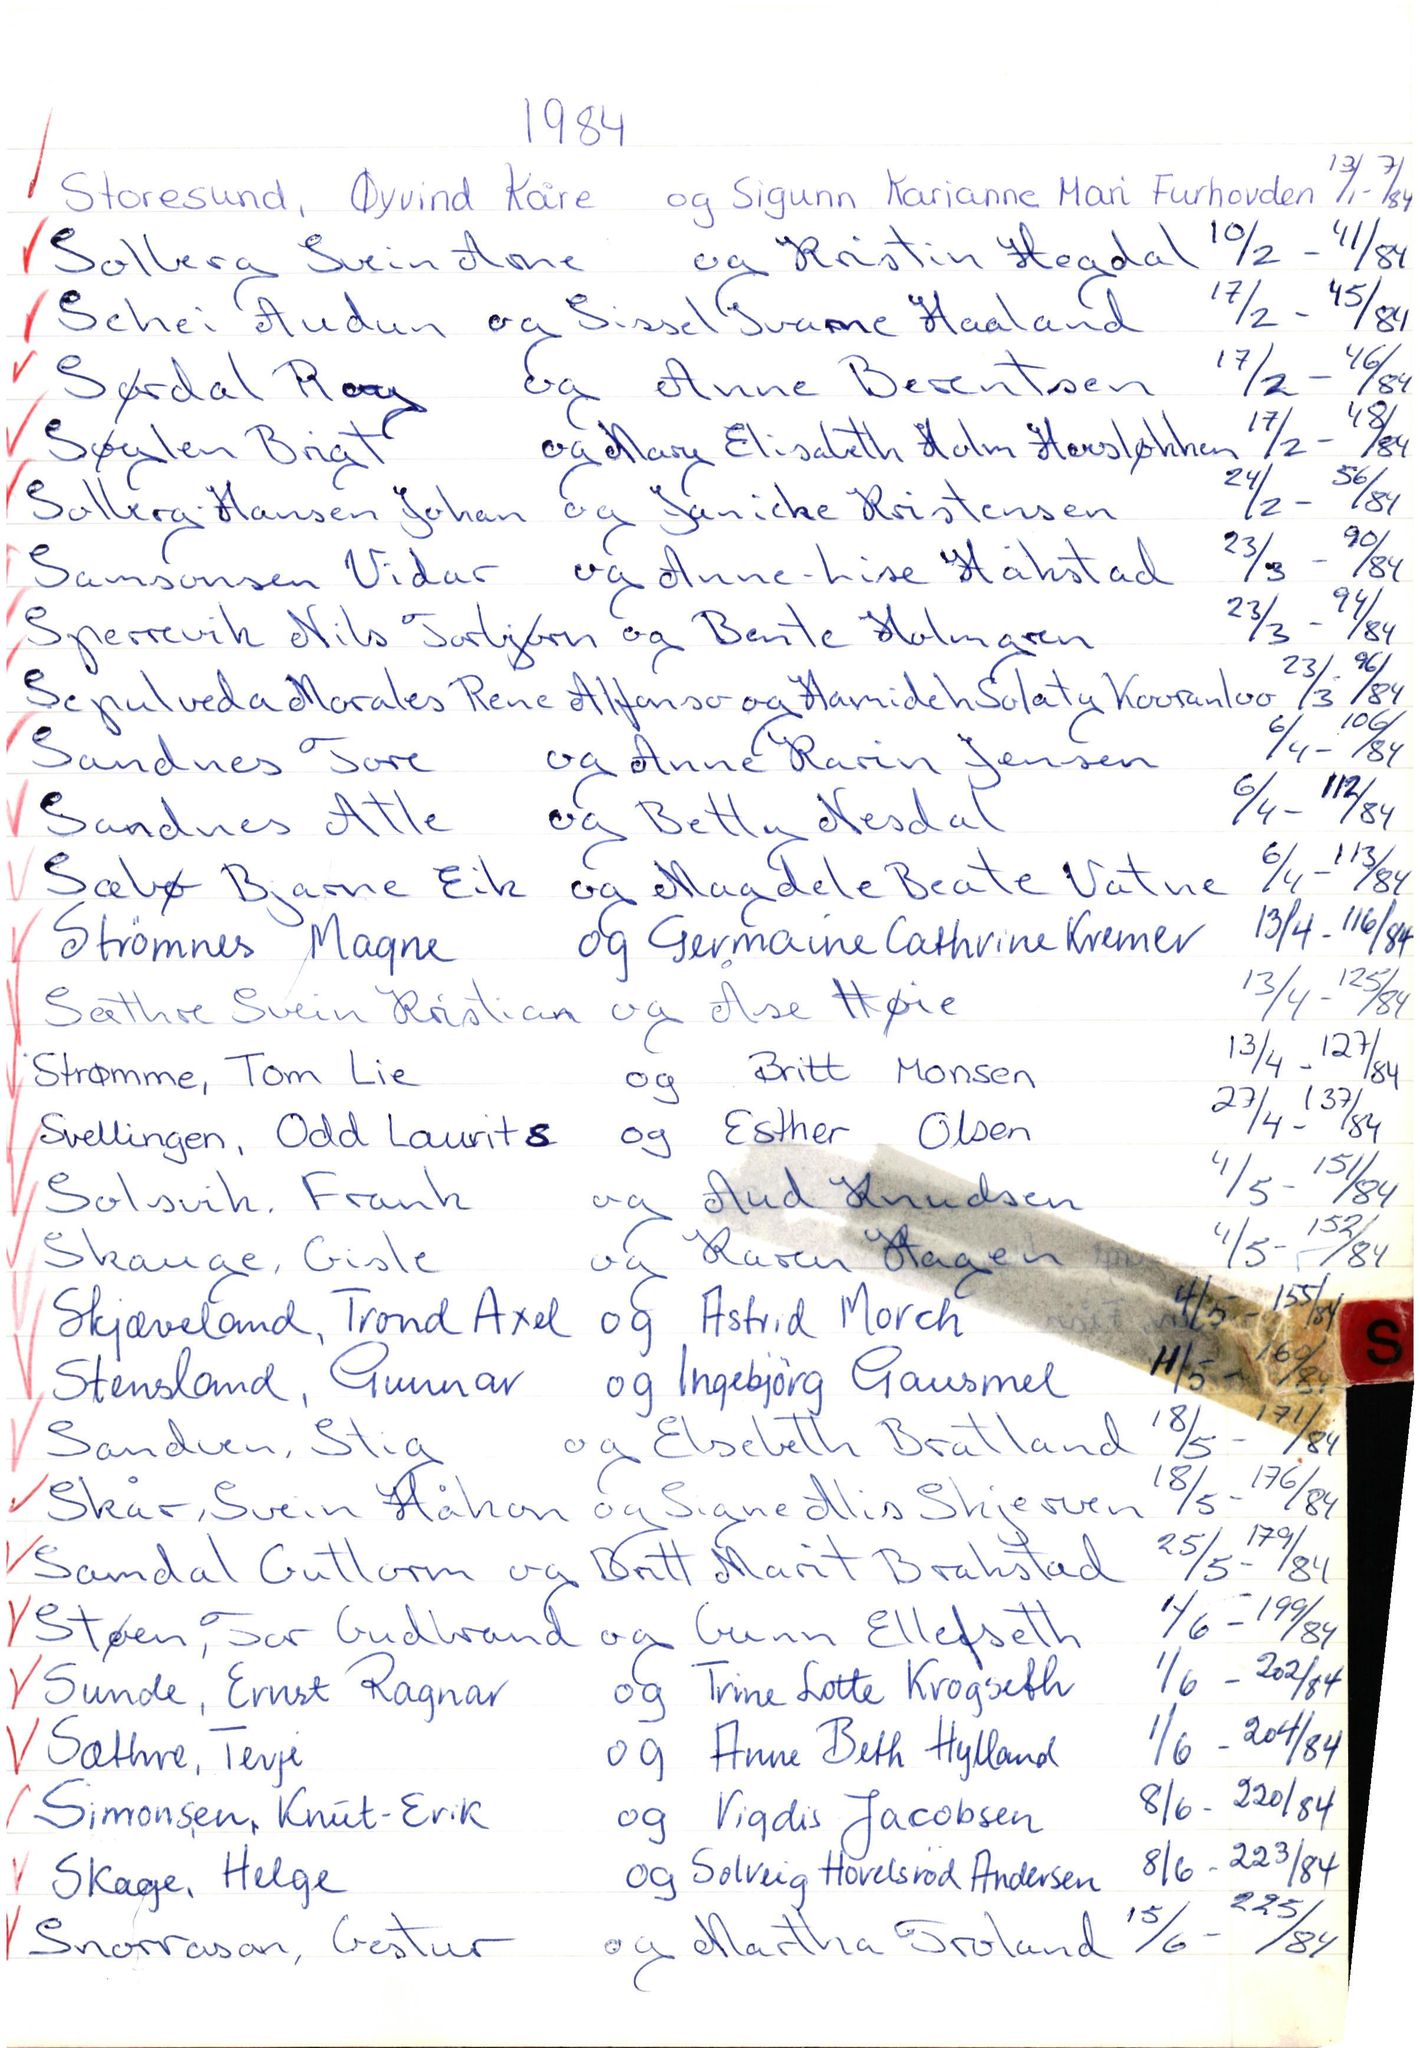 1984
Storesund, Øyvind Kåre og Sigunn Karianne Mari Furhovden 13/1-7/84
Solberg Svein Arne og Kristin Hegdal 10/2 - 41/84
Schei Audun og Sissel Svarne Haaland 17/2 - 45/84
Sørdal Roy og Anne Berentsen 17/2 - 46/84
Søglen Brigt og Mary Elisabeth Holm Hersløkken 17/2 - 48/84
Solberg-Hansen Johan og Janicke Kristensen 24/2 - 56/84
Samsonsen Vidar og Anne-Lise Håkstad 23/3 - 90/84
Sperrevik Nils Torbjørn og Bente Holmgren 23/3 - 94/84
Sepulveda Morales Rene Alfonso og Hamideh Solaty Kooranloo 23/3 - 96/84
Sandnes Tore og Anne Karin Jensen 6/4 - 106/84
Sandnes Atle og Betty Nesdal 6/4 - 112/84
Sæbø Bjarne Eik og Magdele Beate Vatne 6/4 - 113/84
Strömnes Magne og Germaine Cathrine Kremer 13/4 - 116/84
Sæthre Svein Kristian og Åse Høie 13/4 - 125/84
Strømme, Tom Lie og Britt Monsen 13/4 - 127/84
Svellingen, Odd Laurits og Esther Olsen 27/4 - 137/84
Solsvik, Frank og Aud Knudsen 4/5 - 151/84
Skauge, Gisle og Karen Hagen 4/5 - 152/84
Skjæveland, Trond Axel og Astrid Morch 4/5 - 155/84
Stensland, Gunnar og Ingebjörg Gausmel 11/5 - 160/84
S
Sandven, Stig og Elsebeth Bratland 18/5 - 171/84
Skår, Svein Håkon og Signe Alis Skjerven 18/5 - 176/84
Samdal Guttorm og Britt Marit Brakstad 25/5 - 179/84
Støen, Tor Gudbrand og Gunn Ellefseth 1/6 - 199/84
Sunde, Ernst Ragnar og Trine Lotte Krogseth 1/6 - 202/84
Sæthre, Terje og Anne Beth Hylland 1/6 - 204/84
Simonsen, Knut-Erik og Vigdis Jacobsen 8/6 - 220/84
Skage, Helge og Solveig Hovelsröd Andersen 8/6 - 223/84
Snorrason, Gestur og Martha Troland 15/6 - 225/84